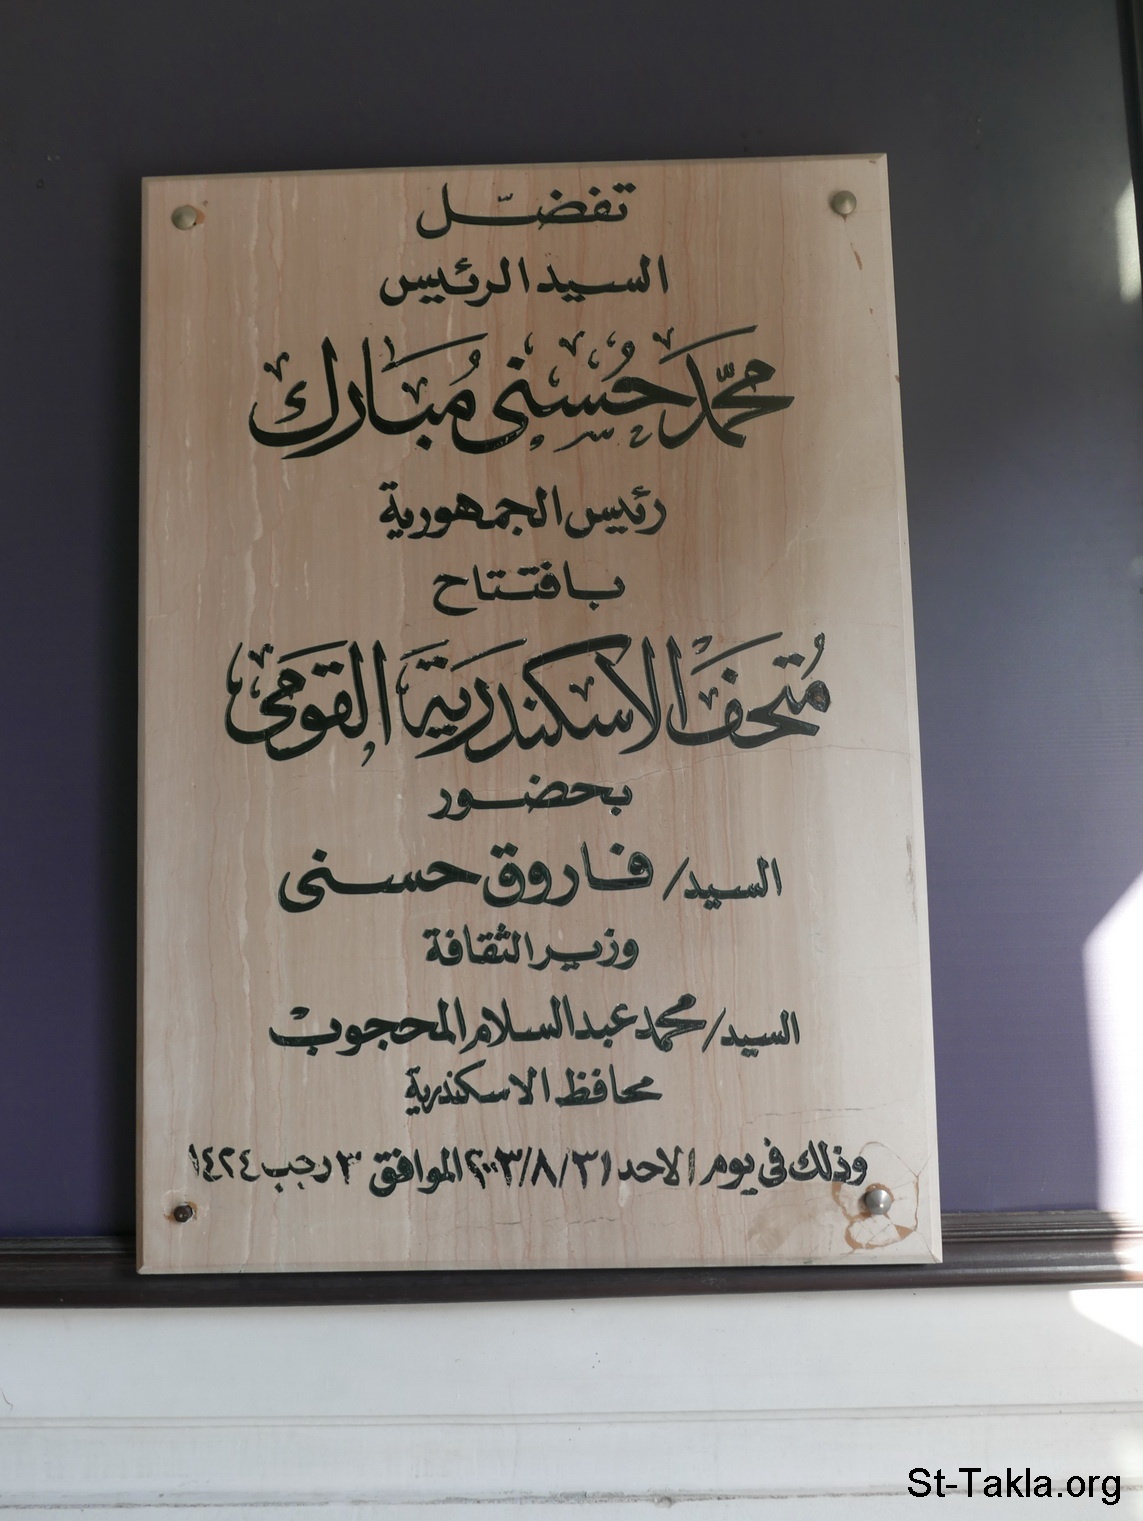 تفضّل
السيد الرئيس
محمّد حُسنى مُبارك
رئيس الجمهورية
بافتتاح
مُتحف الاسكندرية القومى
بحضور
السيد/ فاروق حسنى
وزير الثقافة
السيد/ محمد عبد السلام المحجوب
محافظ الاسكندرية
وذلك فى يوم الاحد ٢٠٠٣/٨/٣١ الموافق ٣ رجب ١٤٢٤
St-Takla.org